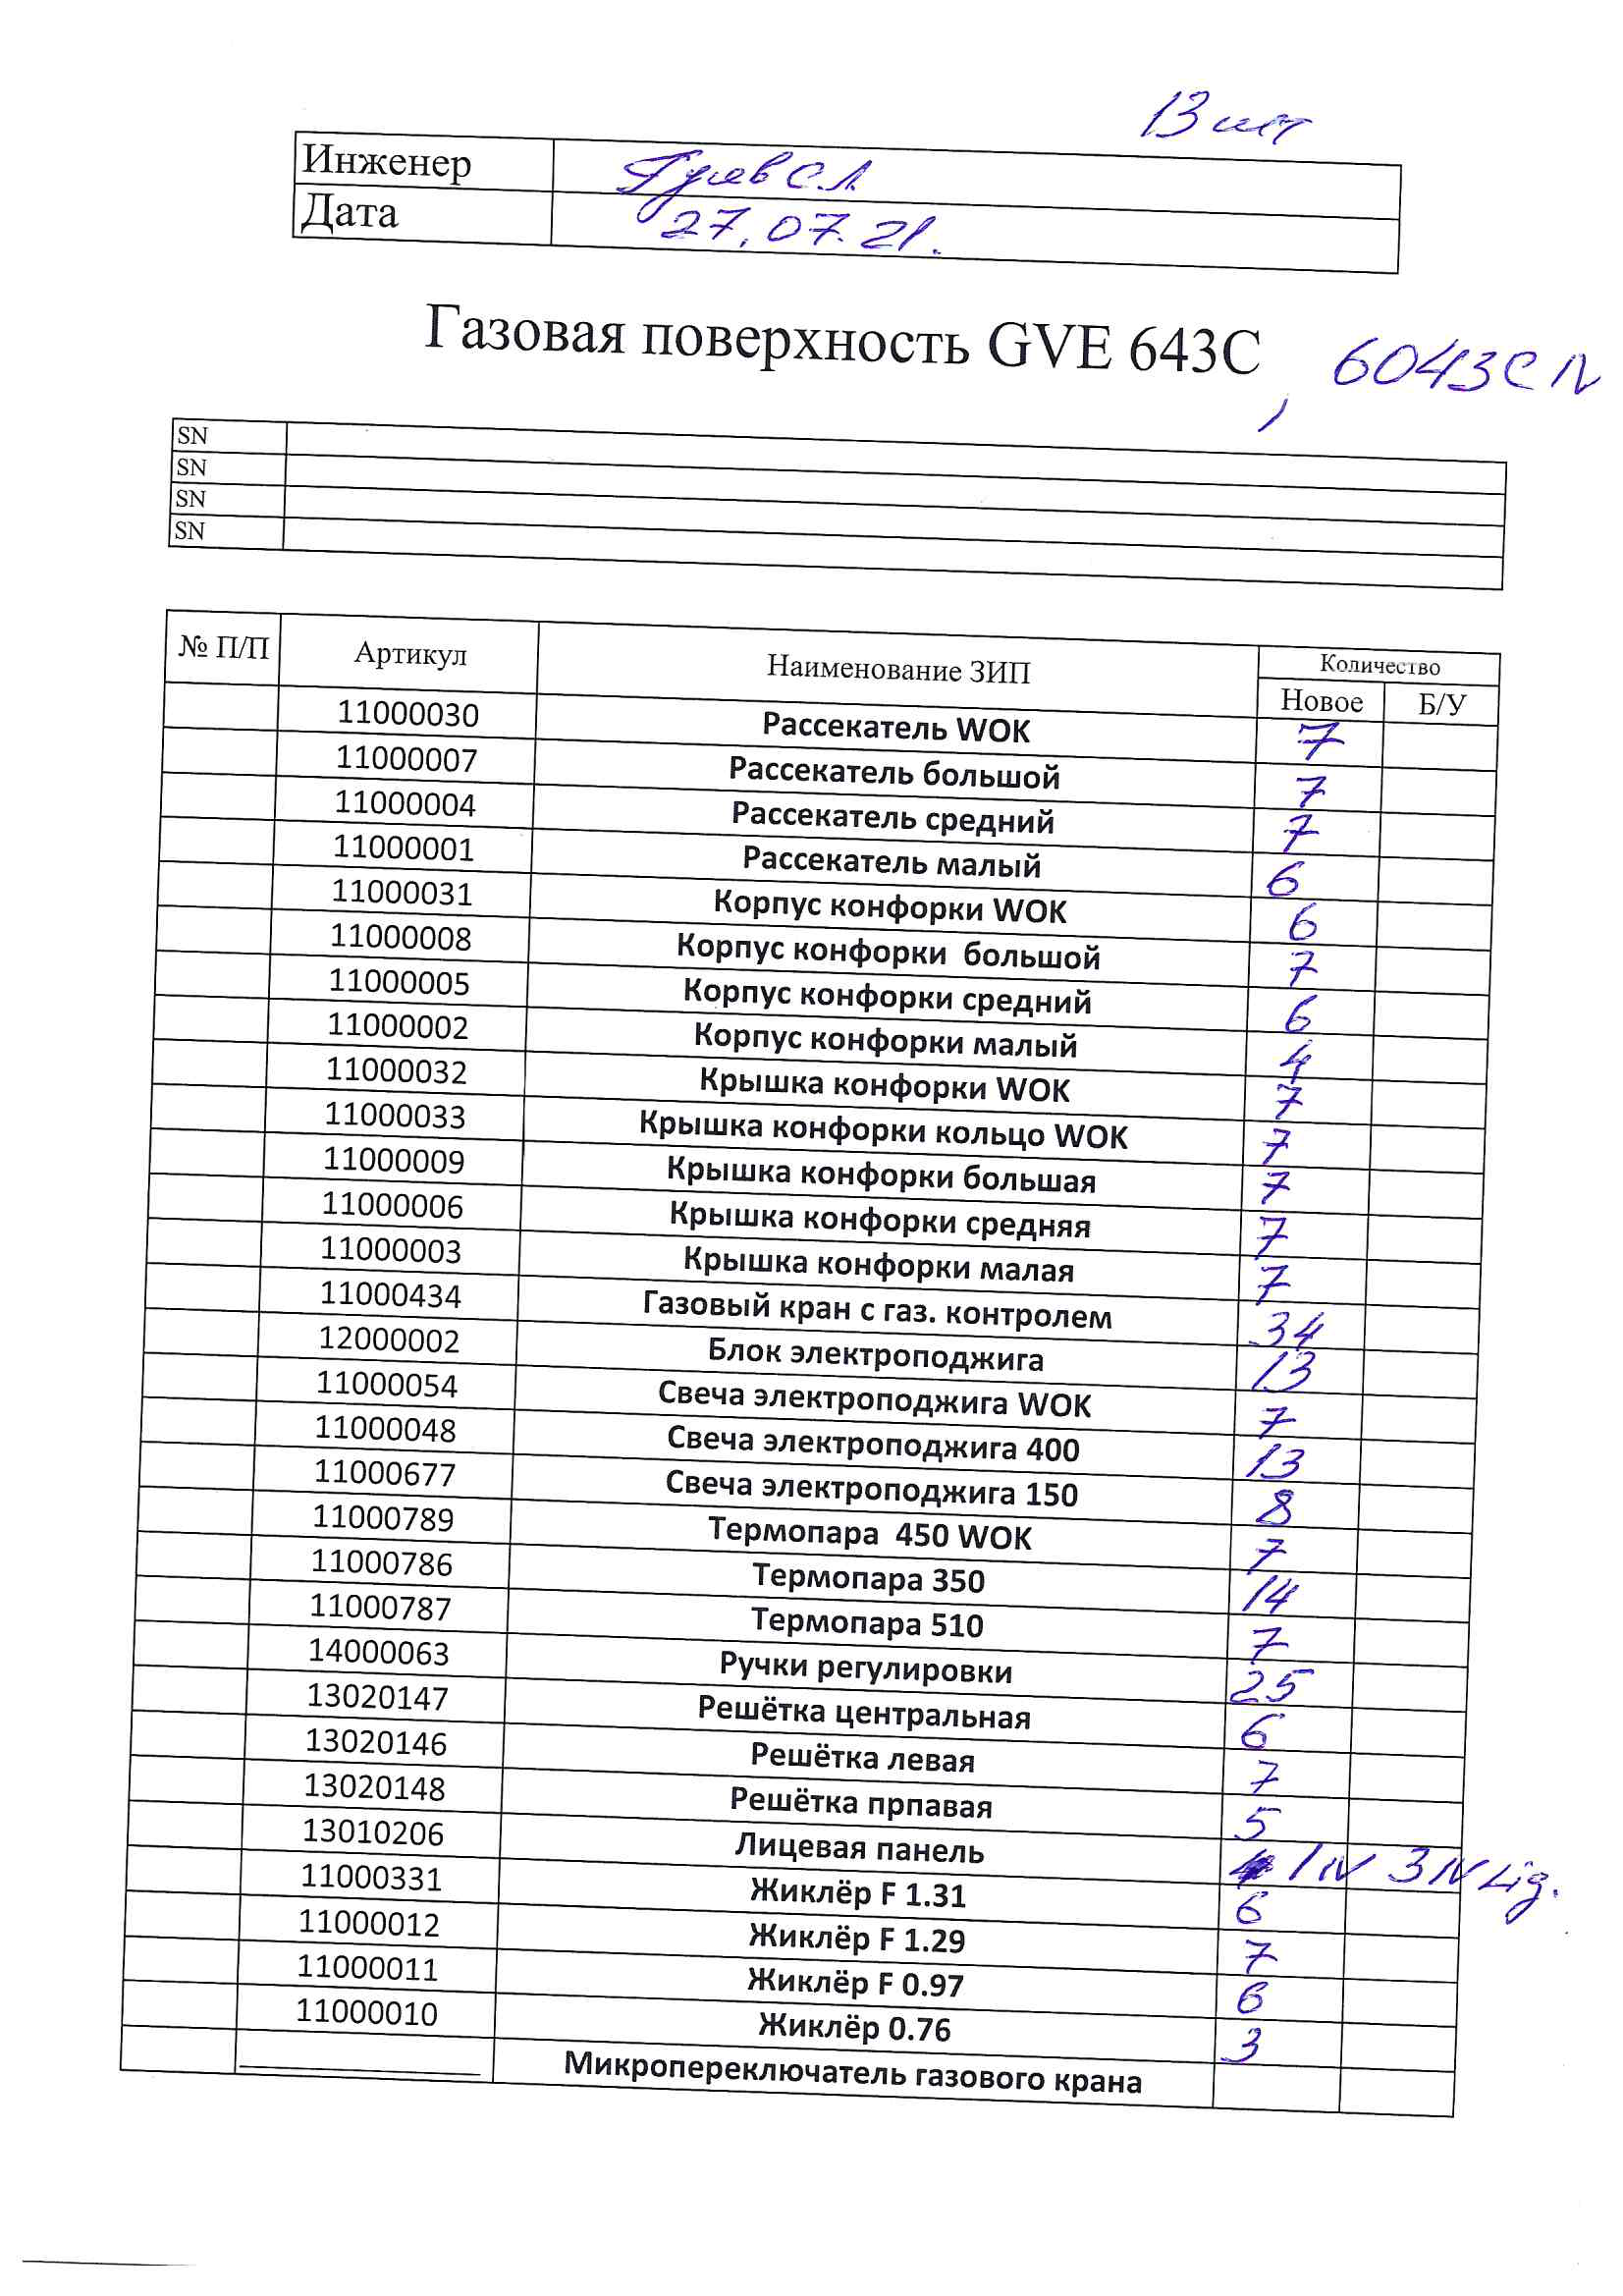 13 шт
Инженер Гуев С.Л.
Дата 27.07.21.
Газовая поверхность GVE 643C , 6043C N
SN
SN
SN
SN
№ П/П Артикул Наименование ЗИП Количество
Новое Б/У
11000030 Рассекатель WOK 7
11000007 Рассекатель большой 7
11000004 Рассекатель средний 7
11000001 Рассекатель малый 6
11000031 Корпус конфорки WOK 6
11000008 Корпус конфорки большой 7
11000005 Корпус конфорки средний 6
11000002 Корпус конфорки малый 4
11000032 Крышка конфорки WOK 7
11000033 Крышка конфорки кольцо WOK 7
11000009 Крышка конфорки большая 7
11000006 Крышка конфорки средняя 7
11000003 Крышка конфорки малая 7
11000434 Газовый кран с газ. контролем 34
12000002 Блок электроподжига 13
11000054 Свеча электроподжига WOK 7
11000048 Свеча электроподжига 400 13
11000677 Свеча электроподжига 150 8
11000789 Термопара 450 WOK 7
11000786 Термопара 350 14
11000787 Термопара 510 7
14000063 Ручки регулировки 25
13020147 Решётка центральная 6
13020146 Решётка левая 7
13020148 Решётка прпавая 5
13010206 Лицевая панель 1N 3N Lig.
11000331 Жиклёр F 1.31 6
11000012 Жиклёр F 1.29 7
11000011 Жиклёр F 0.97 6
11000010 Жиклёр 0.76 3
Микропереключатель газового крана